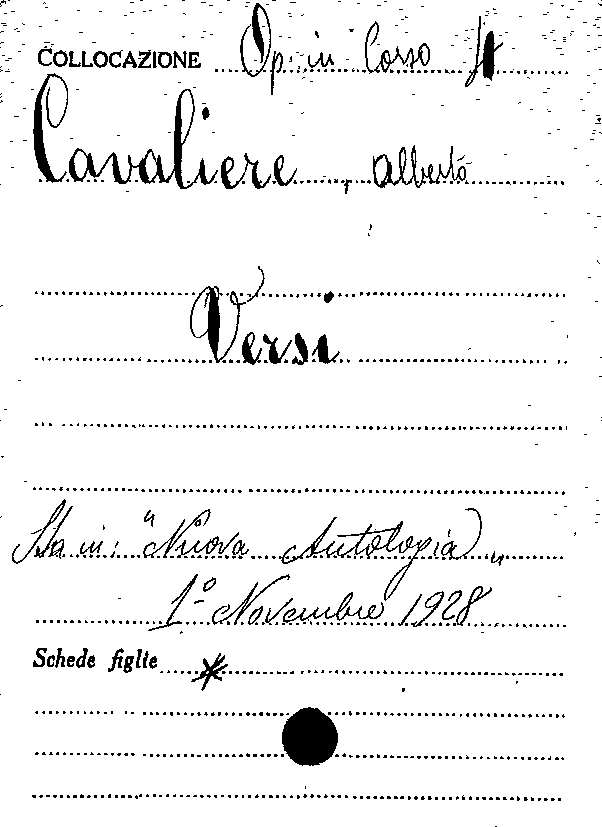 COLLOCAZIONE Op. in Corso
Cavaliere, Alberto
Versi
Sta in: "Nuova Antologia"
1º Novembre 1928
Schede figlie